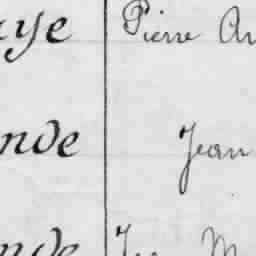 aye Pierre Ar
nde Jean
nde